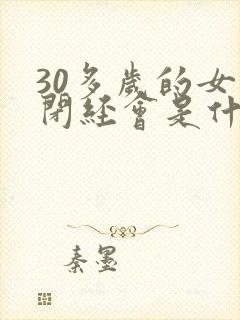 30多歲的女
閉經會是什
秦墨